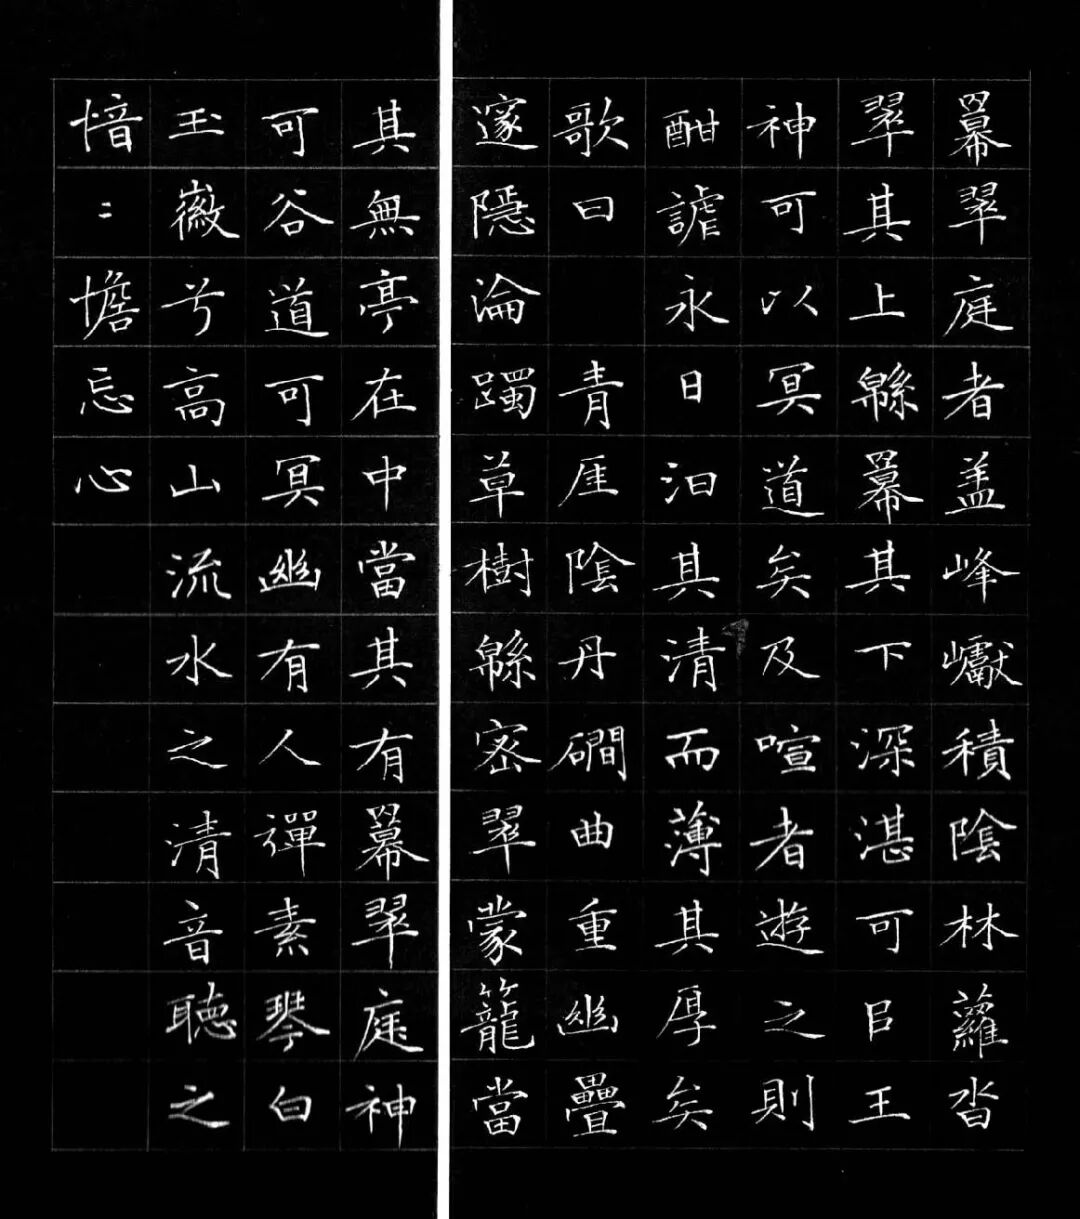 羃翠庭者盖峰巘積陰林蘿沓
翠其上緜羃其下深湛可㠯王
神可以冥道矣及喧者遊之則
酣謔永日汩其清而薄其厚矣
歌曰　青厓陰丹磵曲重幽疊
邃隱淪躅草樹緜密翠蒙籠當
其無亭在中當其有羃翠庭神
可谷道可冥幽有人禪素琴白
玉徽兮高山流水之清音聽之
愔〻憺忘心